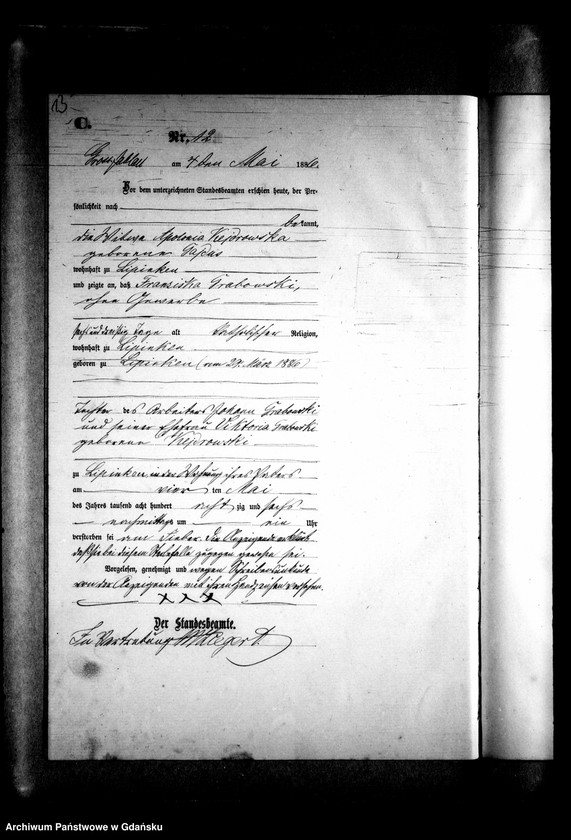 13
C.
Nr. 12
am 7ten Mai 1886.
Vor dem unterzeichneten Standesbeamten erschien heute, der Per-
sönlichkeit nach
bekannt,
die Witwe Apolonia Kejdrowska
geborene
wohnhaft zu Lipinken
und zeigte an, daß Franziska Grabowski,
ohne Gewerbe
sechsunddreißig Tage alt katholischer Religion,
wohnhaft zu Lipinken
geboren zu Lipinken (am 29. März 1886)
Tochter des Arbeiters Johann Grabowski
und seiner Ehefrau Viktoria Grabowski
geborene Kejdrowski
zu Lipinken in der Wohnung ihres Vaters
am vier ten Mai
des Jahres tausend acht hundert acht zig und sechs
nachmittags um ein Uhr
verstorben sei am Fieber. Die Anzeigende erklärt
daß sie bei diesem Sterbefalle zugegen gewesen sei.
Vorgelesen, genehmigt und wegen Schreibensunkunde
von der Anzeigenden mit ihrem Handzeichen versehen.
XXX
Der Standesbeamte.
In Vertretung
Archiwum Państwowe w Gdańsku